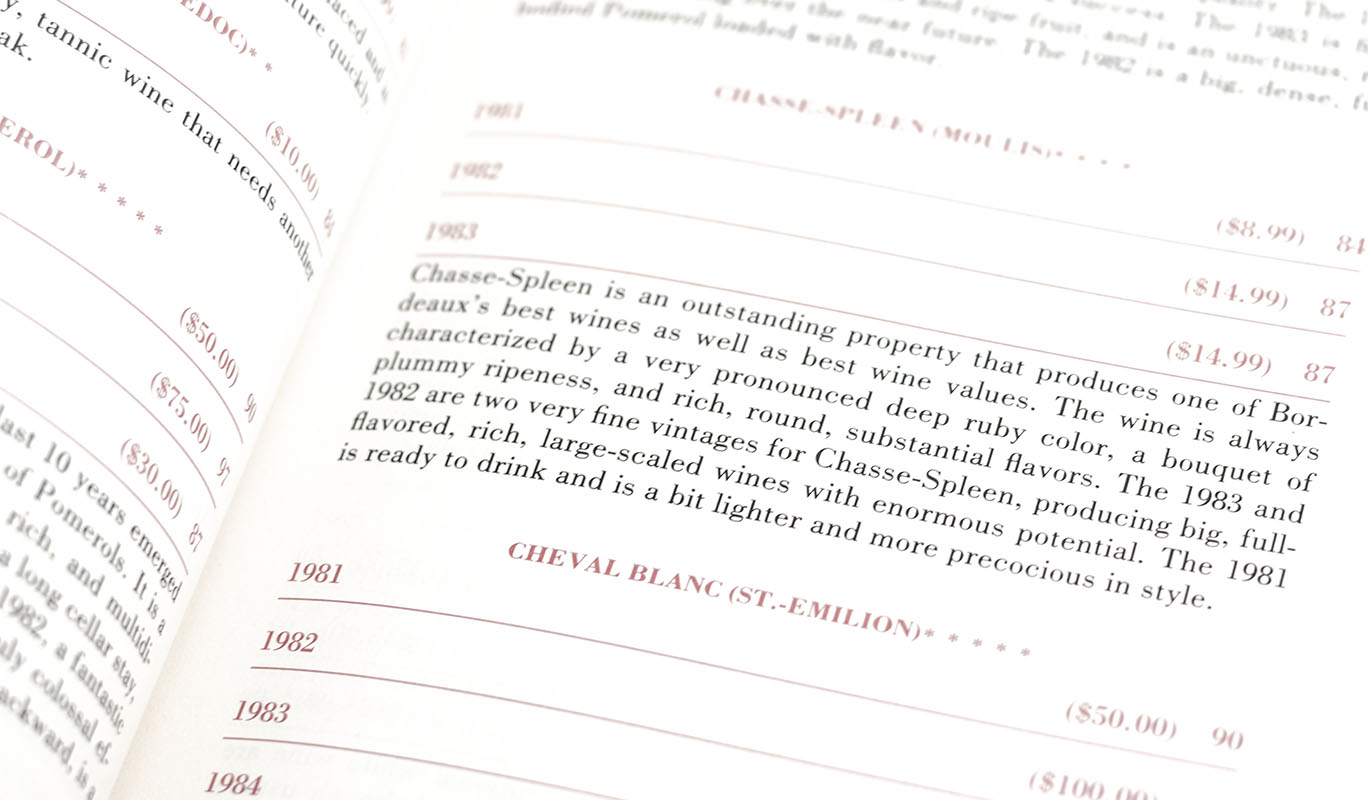 EDOC)* *
($10.00) 84
y, tannic wine that needs another
ak.
EROL)* * * * *
($50.00) 90
($75.00) 97
($30.00) 87
last 10 years emerged
of Pomerols. It is a
rich, and multidi-
a long cellar stay,
1982, a fantastic
uly colossal ef-
ackward, is a
loaded with flavor.
The 1982 is a big, dense,
CHASSE-SPLEEN (MOULIS)* * * *
1981 ($8.99) 84
1982 ($14.99) 87
1983 ($14.99) 87
Chasse-Spleen is an outstanding property that produces one of Bor-
deaux's best wines as well as best wine values. The wine is always
characterized by a very pronounced deep ruby color, a bouquet of
plummy ripeness, and rich, round, substantial flavors. The 1983 and
1982 are two very fine vintages for Chasse-Spleen, producing big, full-
flavored, rich, large-scaled wines with enormous potential. The 1981
is ready to drink and is a bit lighter and more precocious in style.
CHEVAL BLANC (ST.-EMILION)* * * * *
1981 ($50.00) 90
1982 ($100.00)
1983
1984